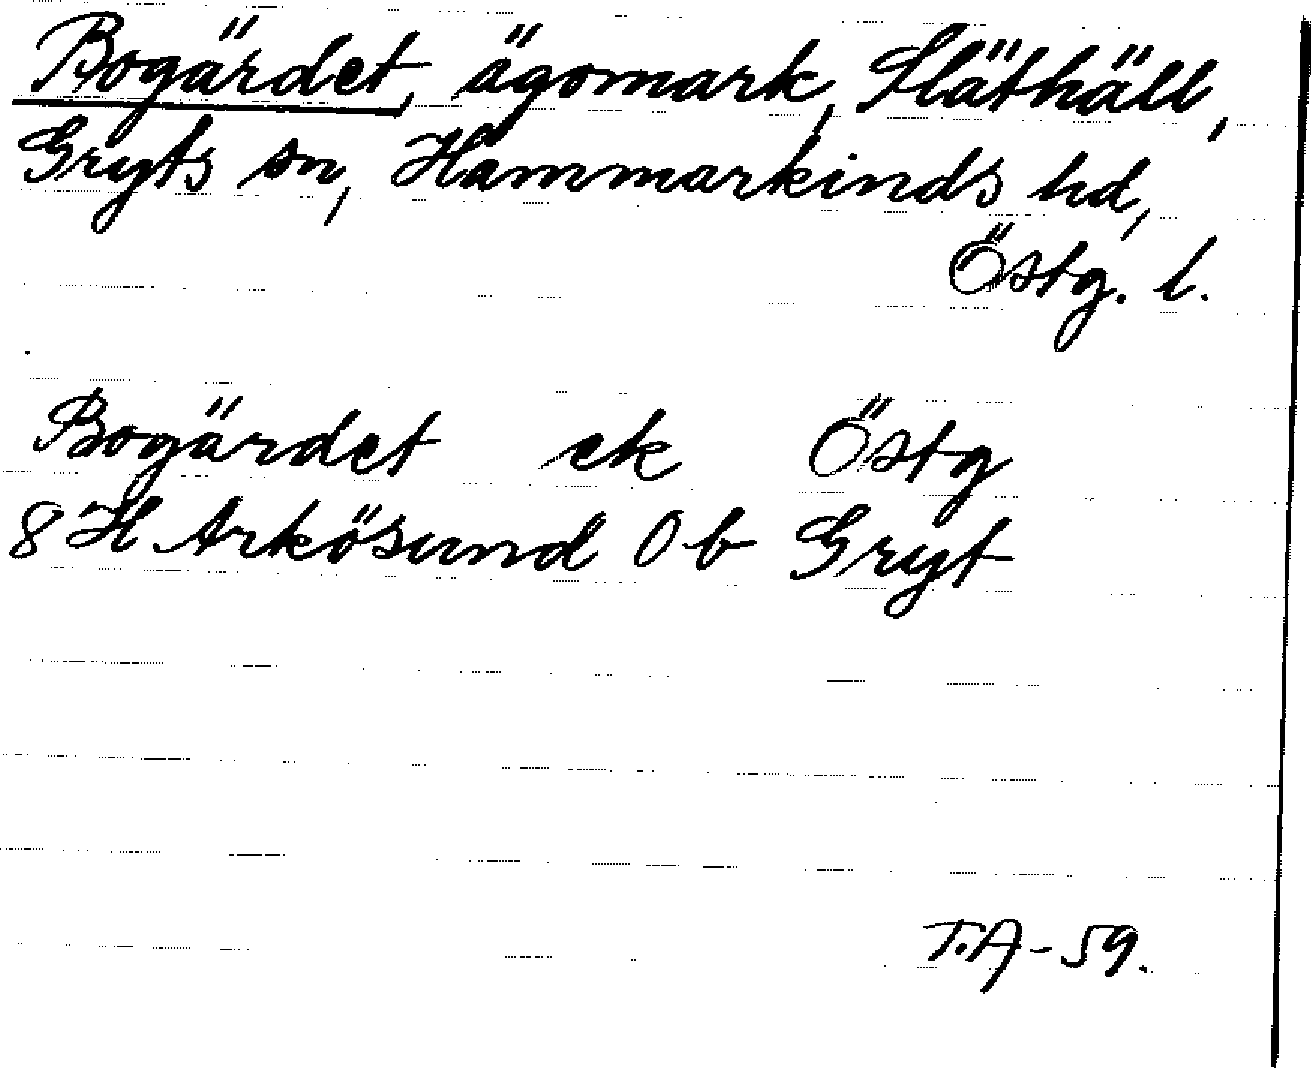 Bogärdet, ägomark, Släthäll,
Gryts sn, Hammarkinds hd,
Östg. l.
Bogärdet ek Östg
8 H Arkösund 0 b Gryt
T.A-59.